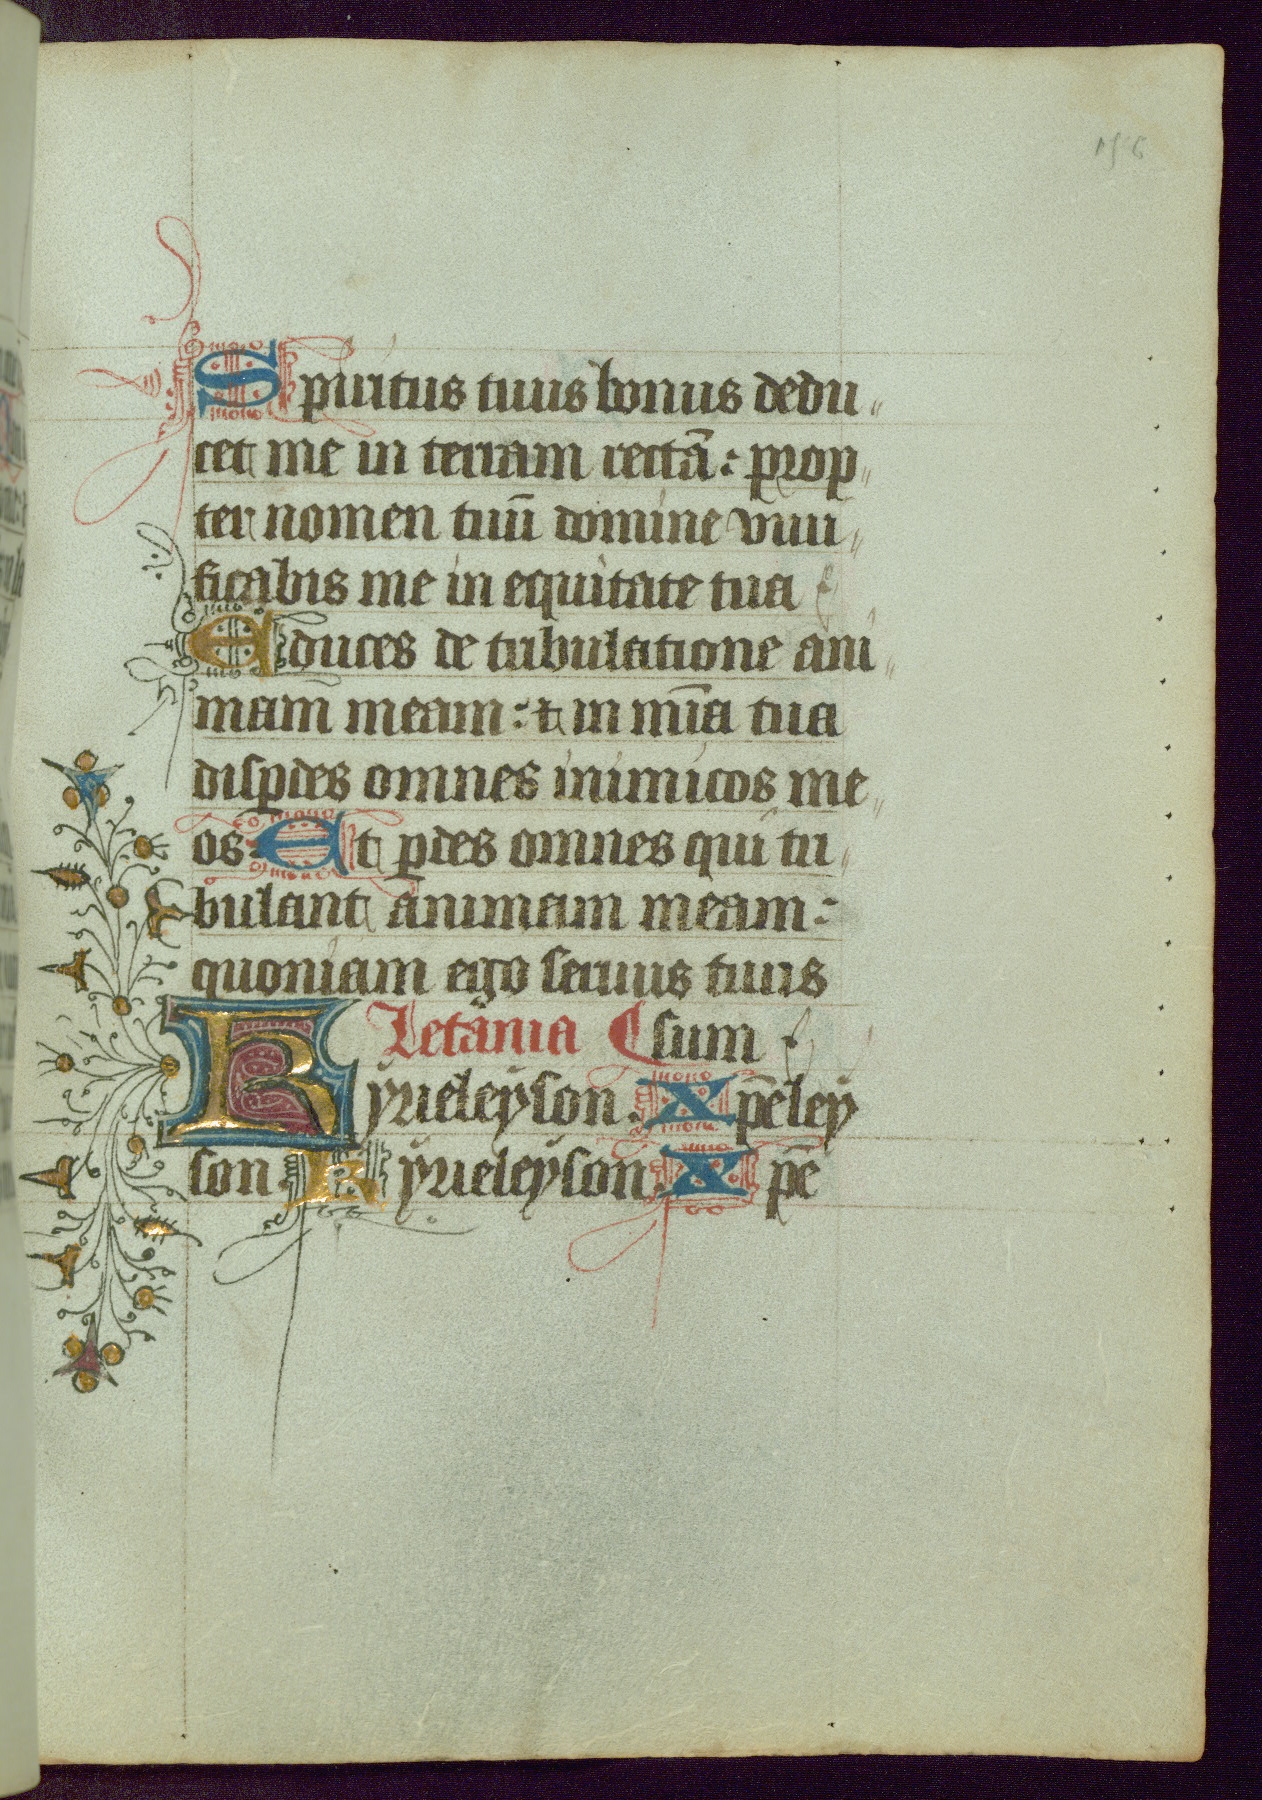 Spiritus tuus bonus dedu
cet me in terram rectā: prop
ter nomen tuū domine viui
ficabis me in equitate tua
Educes de tribulatione ani
mam̄ meam: ⁊ in mīa tua
disꝑdes omnes inimicos me
os: Et ꝑdes omnes qui tri
bulant animam meam:
quoniam ego seruus tuus
Letania sum
Kyrieleyson. Xp̄eley
son. Kyrieleyson. Xp̄e